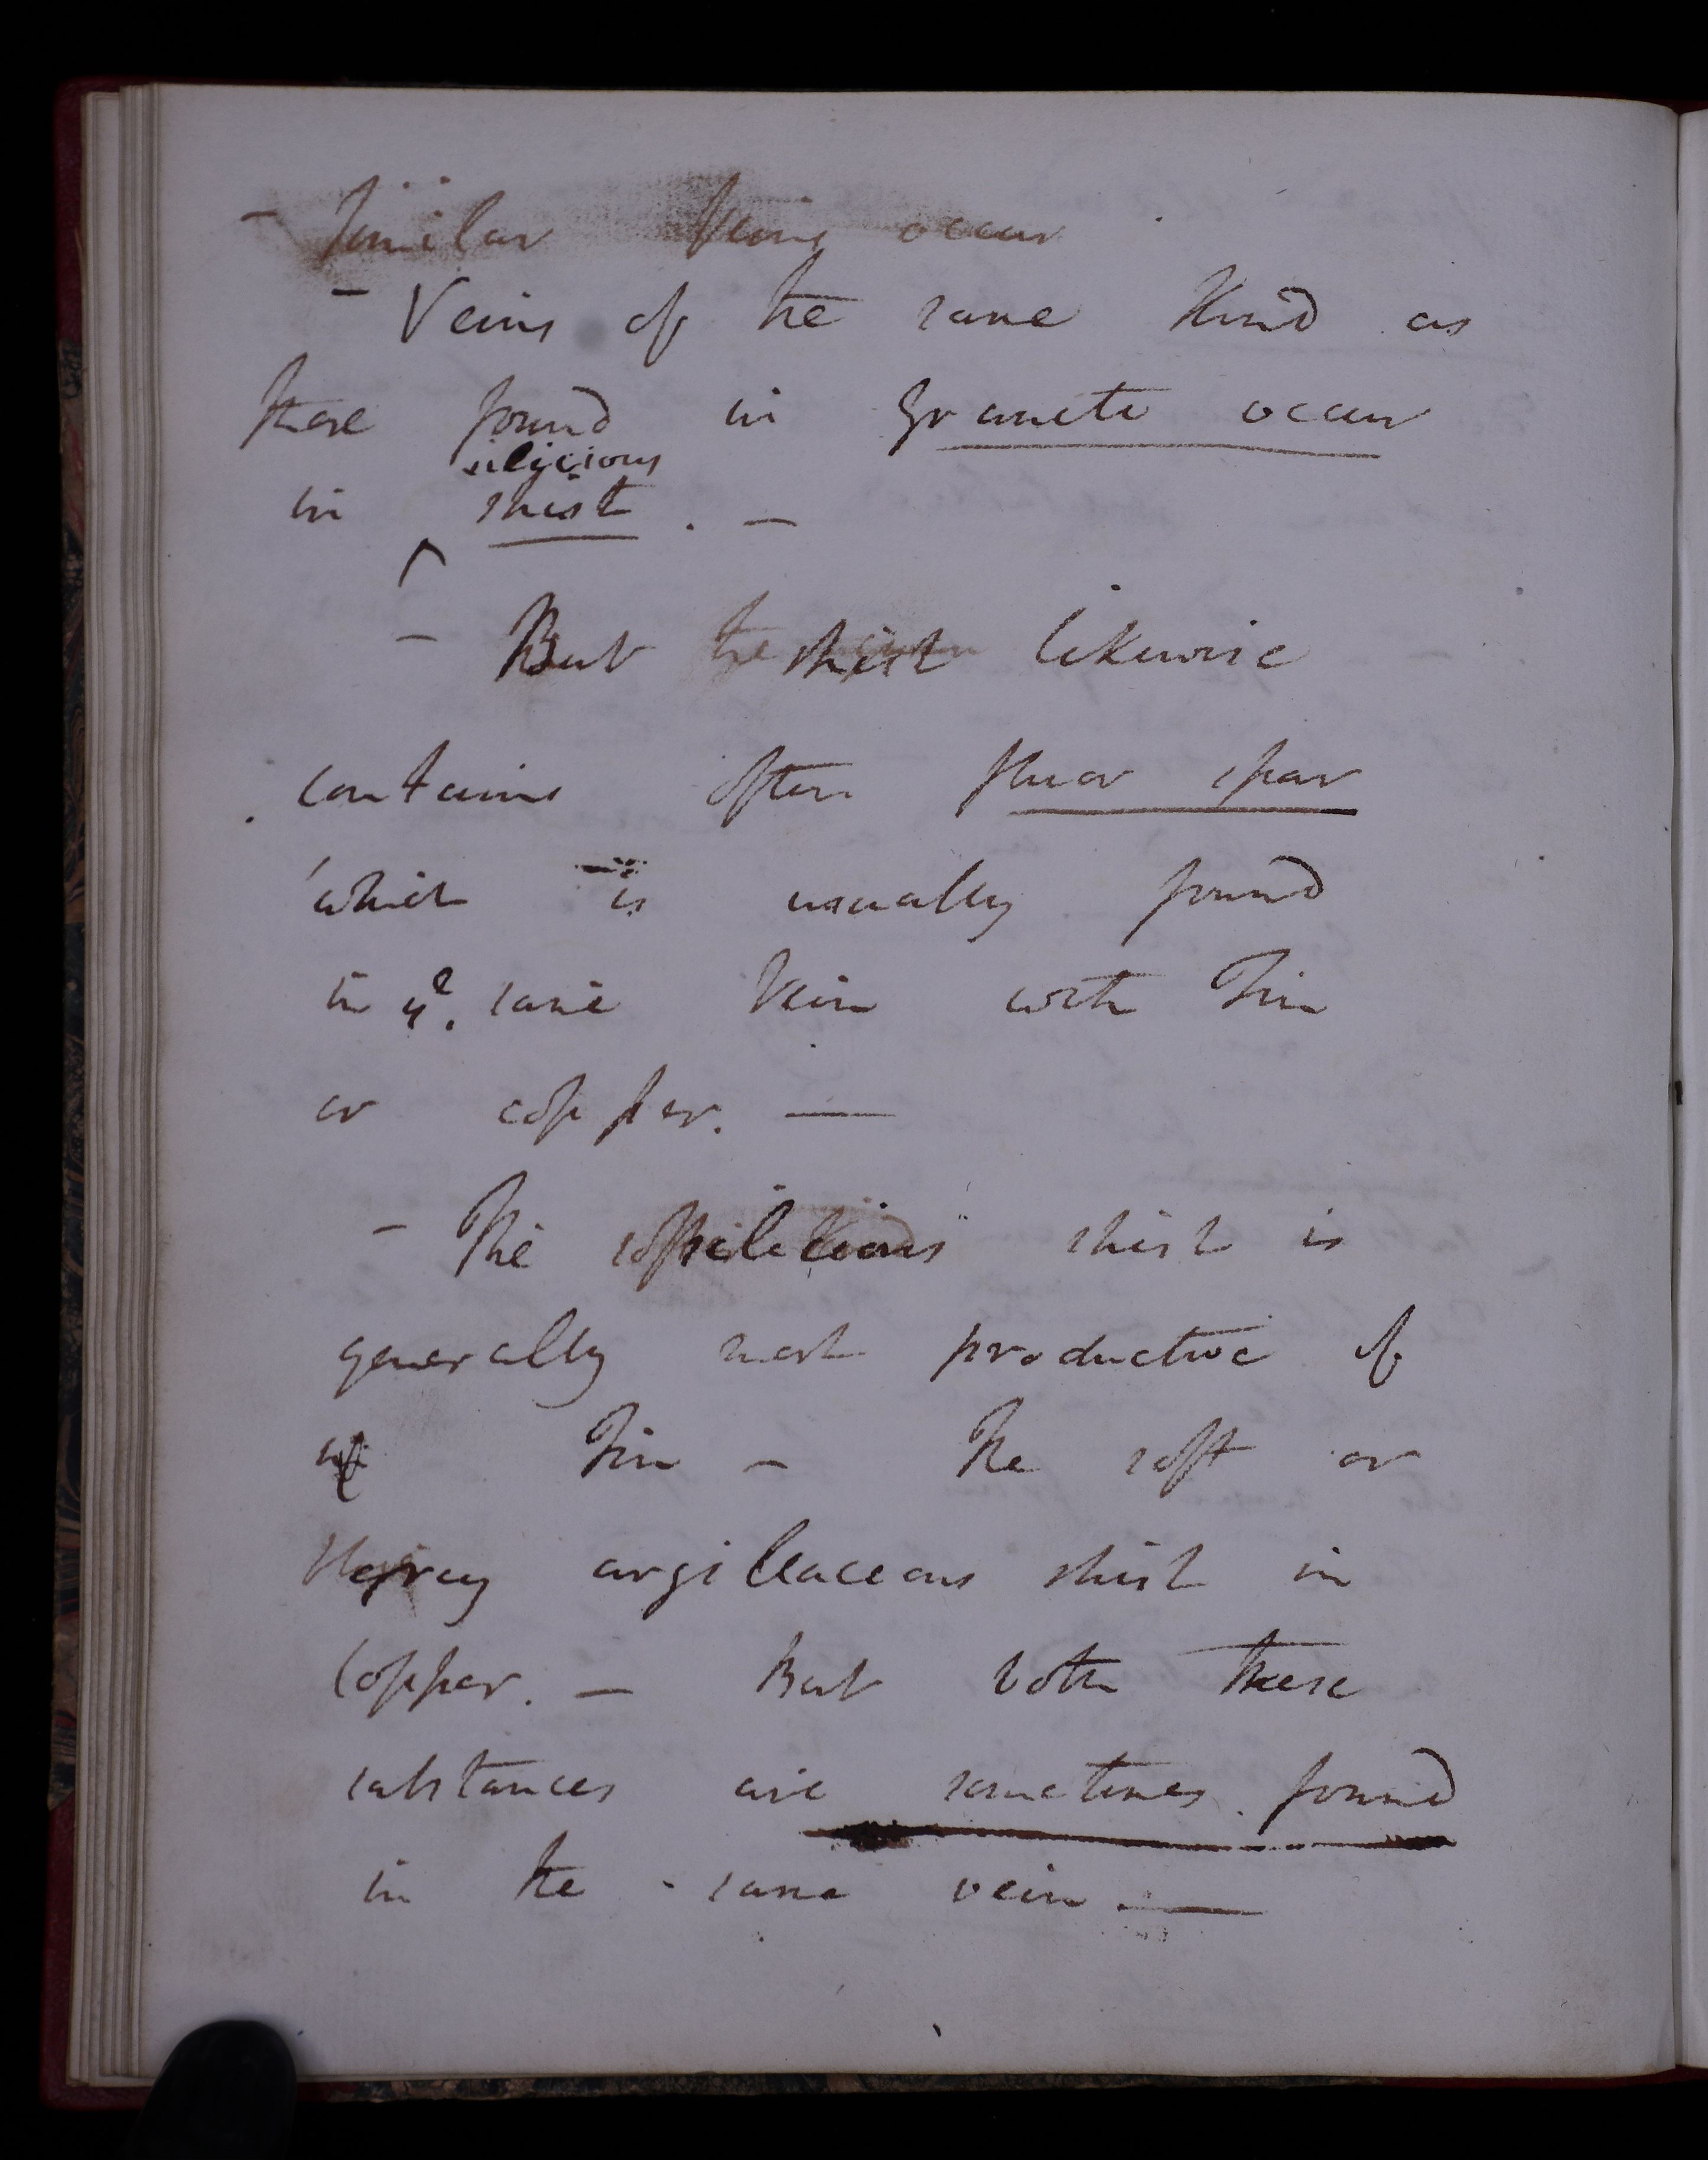 - Similar Veins occur
- Veins of the same Kind as
those found in Granite occur
silicious
in shist. -
- But the shist likewise
contains often fluor spar
which is usually found
in ye. same Vein with Tin
or copper. —
- The silicious shist is
generally most productive of
Tin - The soft or
grey argillaceous shist in
Copper. - But both these
substances are sometimes found
in the same vein. —